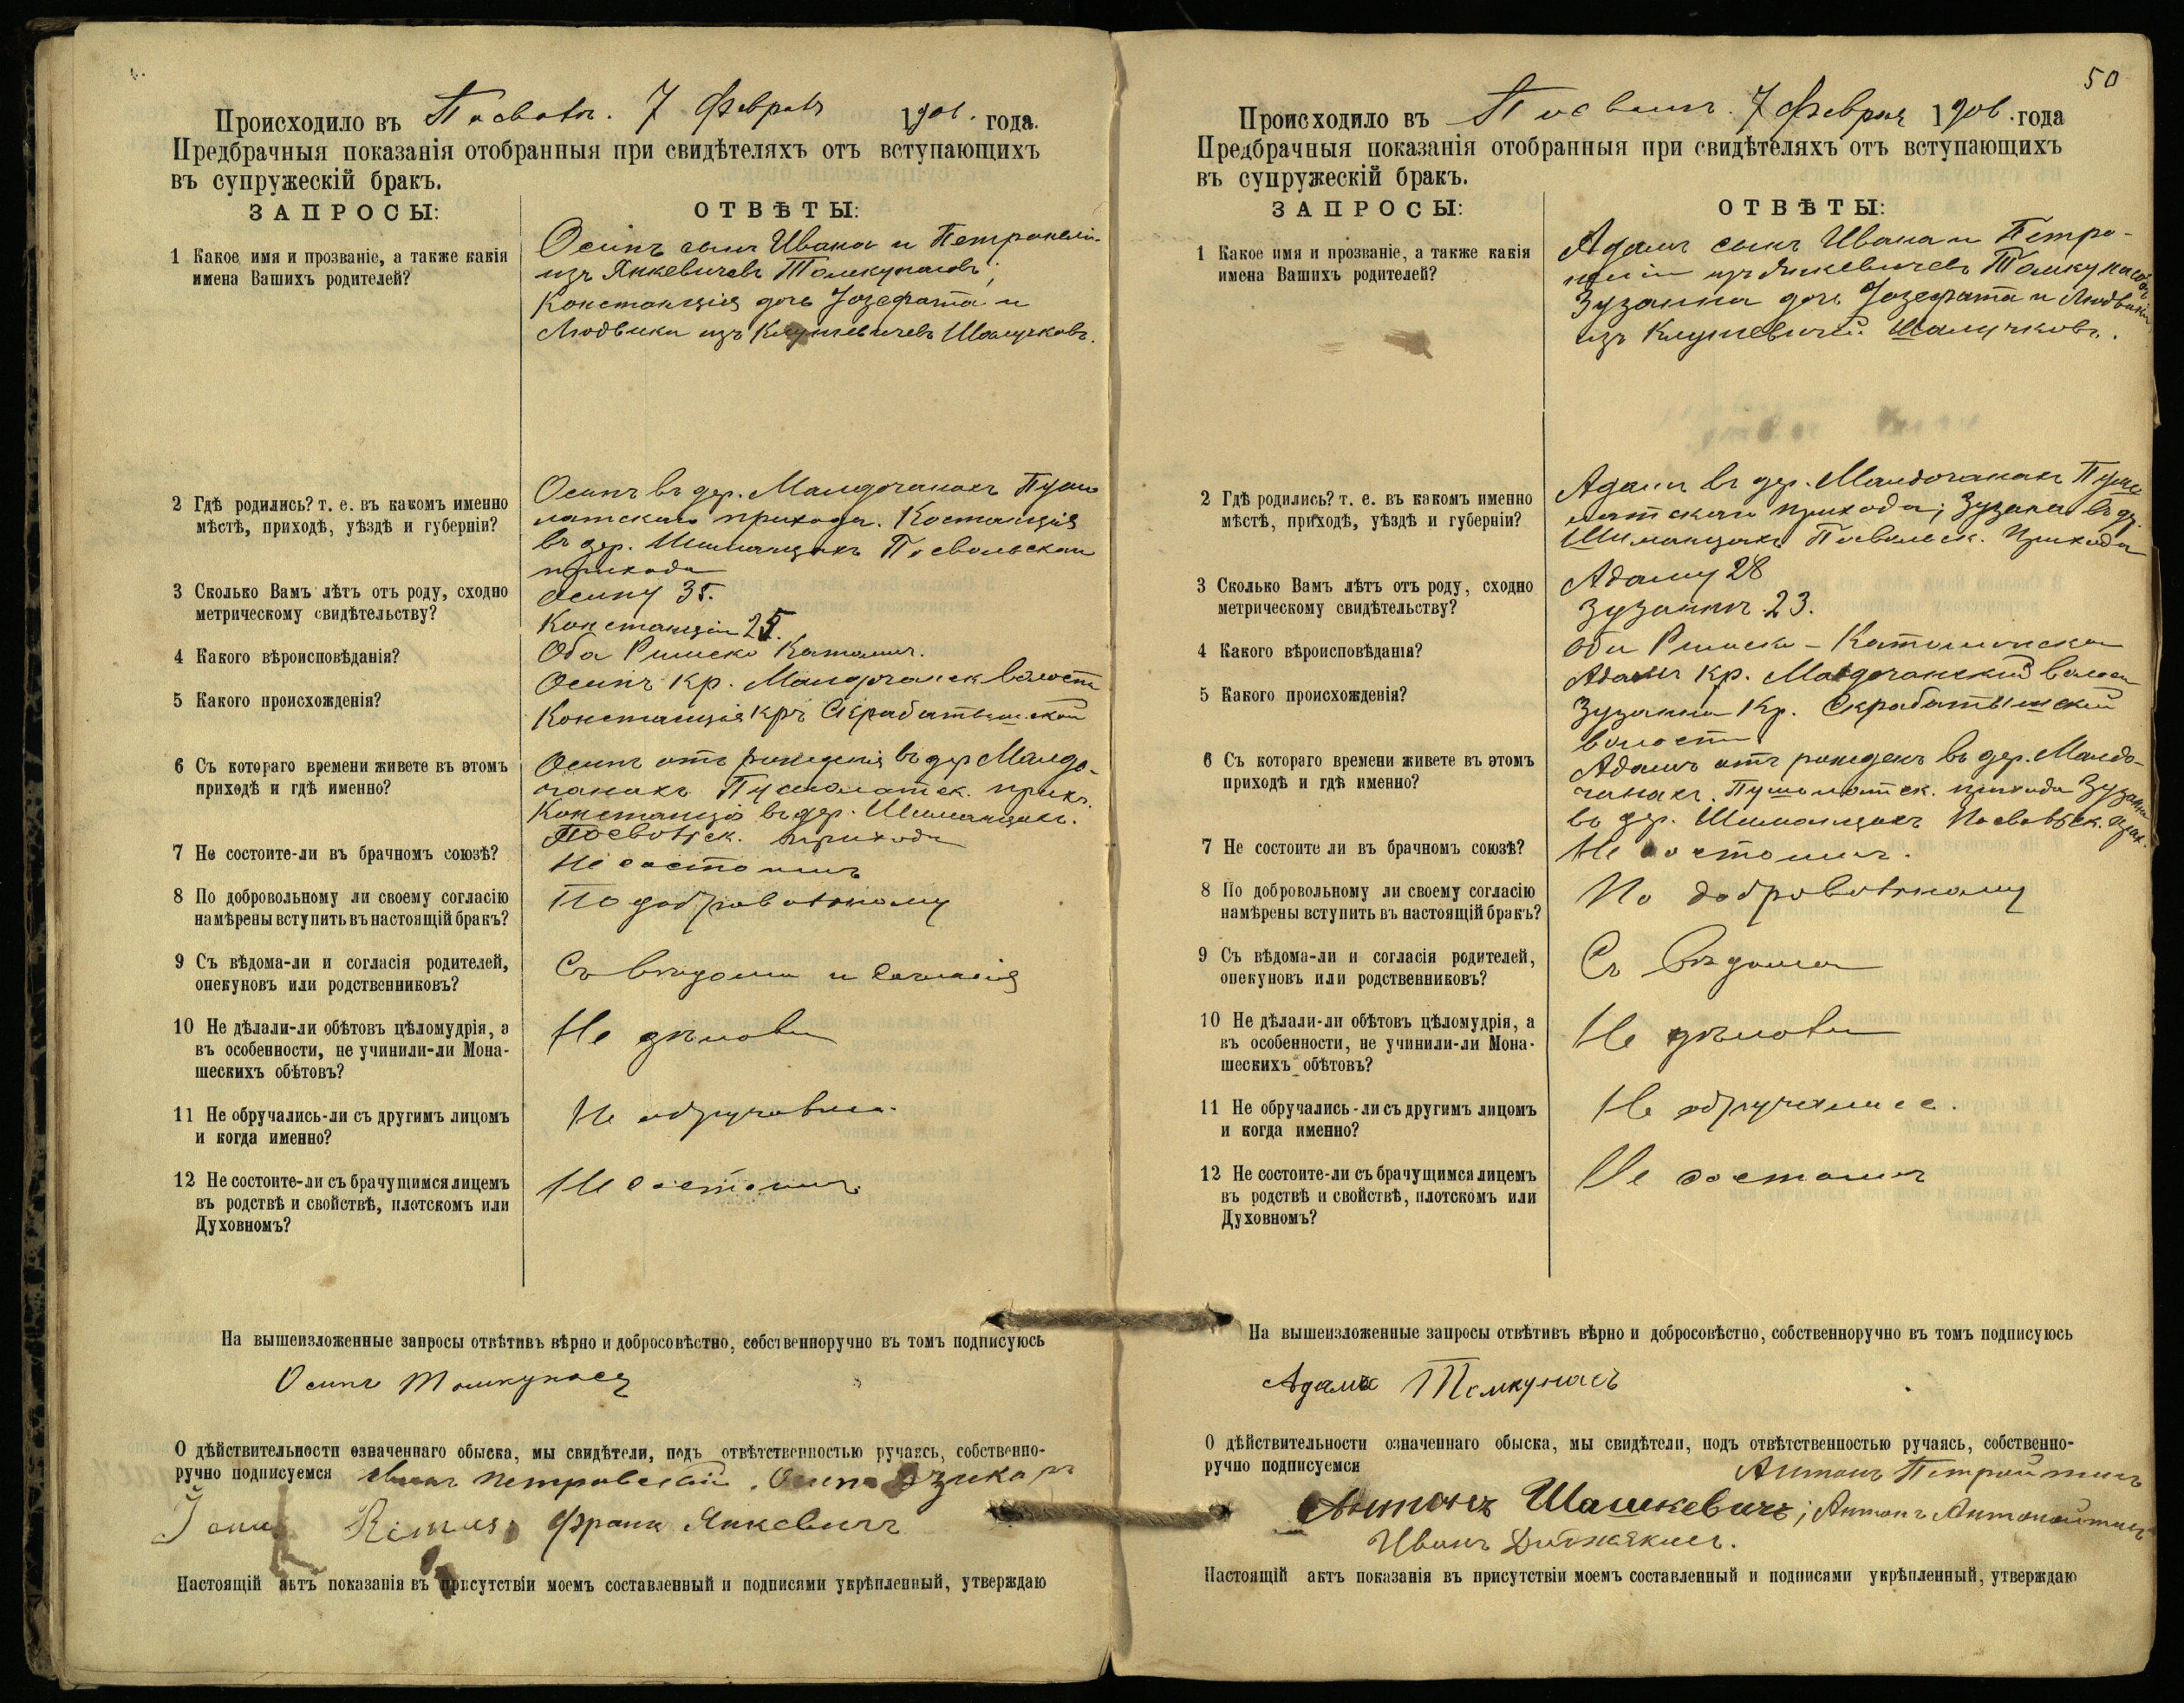 Происходило въ Посволѣ. 7 Февраля 1901. года.
Предбрачныя показанія отобранныя при свидѣтеляхъ отъ вступающихъ
въ супружескій бракъ.
ЗАПРОСЫ:
ОТВѢТЫ:
1 Какое имя и прозваніе, а также какія
имена Вашихъ родителей?
Осипъ сынъ Ивана и Петронели
изъ Янкевичевъ Томкунасовъ;
Констанція дочь Іозефата и
Людвики изъ Шалучковъ.
2 Гдѣ родились? т. е. въ какомъ именно
мѣстѣ, приходѣ, уѣздѣ и губерніи?
Осипъ въ дер. Малдочанахъ Пушо
латскаго прихода. Костанція
въ дер. Шиманцахъ Посвольскаго
прихода
3 Сколько Вамъ лѣтъ отъ роду, сходно
метрическому свидѣтельству?
Осипу 35.
Констанціи 25.
4 Какого вѣроисповѣданія?
Оба Римско Католич.
5 Какого происхожденія?
Осипъ кр. волости
Констанція кр. Скрабатышской
6 Съ котораго времени живете въ этомъ
приходѣ и гдѣ именно?
Осипъ отъ рожденія въ дер Малдо-
чанахъ Пушолатск. прих.
Констанція въ дер. Шиманцахъ.
Посвольск. прихода
7 Не состоите-ли въ брачномъ союзѣ?
Не состоимъ
8 По добровольному ли своему согласію
намѣрены вступить въ настоящій бракъ?
По добровольному
9 Съ вѣдома-ли и согласія родителей,
опекуновъ или родственниковъ?
Съ вѣдома и согласія
10 Не дѣлали-ли обѣтовъ цѣломудрія, а
въ особенности, не учинили-ли Мона-
шескихъ обѣтовъ?
Не дѣлали
11 Не обручались-ли съ другимъ лицомъ
и когда именно?
Не обручались.
12 Не состоите-ли съ брачущимся лицемъ
въ родствѣ и свойствѣ, плотскомъ или
Духовномъ?
Не состоимъ.
На вышеизложенные запросы отвѣтивъ вѣрно и добросовѣстно, собственноручно въ томъ подписуюсь
Осипъ Томкунасъ
О дѣйствительности означеннаго обыска, мы свидѣтели, подъ отвѣтственностью ручаясь, собственно-
ручно подписуемся Иванъ Петровскій. Осипъ
Rimus, Франц Янкевичъ
Настоящій актъ показанія въ присутствіи моемъ составленный и подписями укрѣпленный, утверждаю
50
Происходило въ Посволѣ. 7 Февраля 1901. года
Предбрачныя показанія отобранныя при свидѣтеляхъ отъ вступающихъ
въ супружескій бракъ.
ЗАПРОСЫ:
ОТВѢТЫ:
1 Какое имя и прозваніе, а также какія
имена Вашихъ родителей?
Адамъ сынъ Ивана и Петро-
неліи изъ Янкевичевъ Томкунасовъ
Зузанна дочь Іозефата и Людвики
изъ Шалучковъ.
2 Гдѣ родились? т. е. въ какомъ именно
мѣстѣ, приходѣ, уѣздѣ и губерніи?
Адамъ въ дер. Малдочанахъ Пушо
латскаго прихода; Зузана въ д.
Шиманцахъ Посвольск. Прихода
3 Сколько Вамъ лѣтъ отъ роду, сходно
метрическому свидѣтельству?
Адаму 28
Зузаннѣ 23.
4 Какого вѣроисповѣданія?
Оба Римско-Католическаго
5 Какого происхожденія?
Адамъ Кр. Малдочанской волости
Зузанна Кр. Скрабатышской
волости
6 Съ котораго времени живете въ этомъ
приходѣ и гдѣ именно?
Адамъ отъ рожден. въ дер. Малдо-
чанахъ. Пушолатск. прихода Зузанна
въ дер. Шиманцахъ Посвольск. прих.
7 Не состоите ли въ брачномъ союзѣ?
Не состоимъ.
8 По добровольному ли своему согласію
намѣрены вступить въ настоящій бракъ?
По добровольному
9 Съ вѣдома-ли и согласія родителей,
опекуновъ или родственниковъ?
Съ вѣдома
10 Не дѣлали-ли обѣтовъ цѣломудрія, а
въ особенности, не учинили-ли Мона-
шескихъ обѣтовъ?
Не дѣлали
11 Не обручались-ли съ другимъ лицомъ
и когда именно?
Не обручались.
12 Не состоите-ли съ брачущимся лицемъ
въ родствѣ и свойствѣ, плотскомъ или
Духовномъ?
Не состоимъ
На вышеизложенные запросы отвѣтивъ вѣрно и добросовѣстно, собственноручно въ томъ подписуюсь
Адамъ Томкунасъ
О дѣйствительности означеннаго обыска, мы свидѣтели, подъ отвѣтственностью ручаясь, собственно-
ручно подписуемся Антонъ Петройтисъ
Антонъ Шашкевичъ; Антонъ Антонайтисъ
Иванъ
Настоящій актъ показанія въ присутствіи моемъ составленный и подписями укрѣпленный, утверждаю